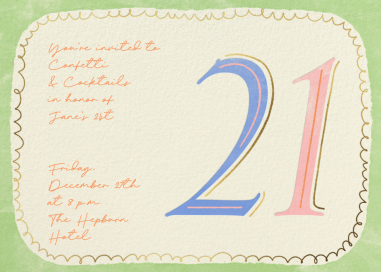 You're invited to
Confetti
& Cocktails
in honor of
Jane's 21st
Friday
December 29th
at 8 p.m.
The Hepburn
Hotel
21